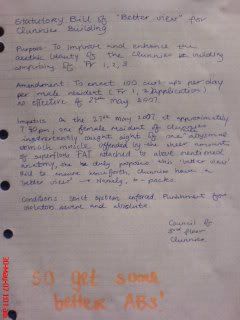 Statutory Bill of "Better view" for
Clunnies Building
Purpose: To improve and enhance the
aesthetic beauty of the Clunnies building
comprising of Fr 1, 2, 3
Amendment: To enact 100 curl ups per day
per male resident (Fr 1, 3 applicable)
as effective of 27th May 2007.
Impetus: On the 27th May 2007, at approximately
7:30 pm, one female resident of Clunnies
inadvertently caught sight of one abysmal
stomach muscle offended by the sheer amounts
of superfluous FAT attached to above mentioned
anatomy, the be duly proposes this 'better view'
Bill to ensure henceforth, Clunnies have a
'better view' → Namely, 6-packs.
Conditions: Strict system enforced. Punishment for
violators severe and absolute.
Council of
3rd floor
Clunnies.
SO get some
better ABS'